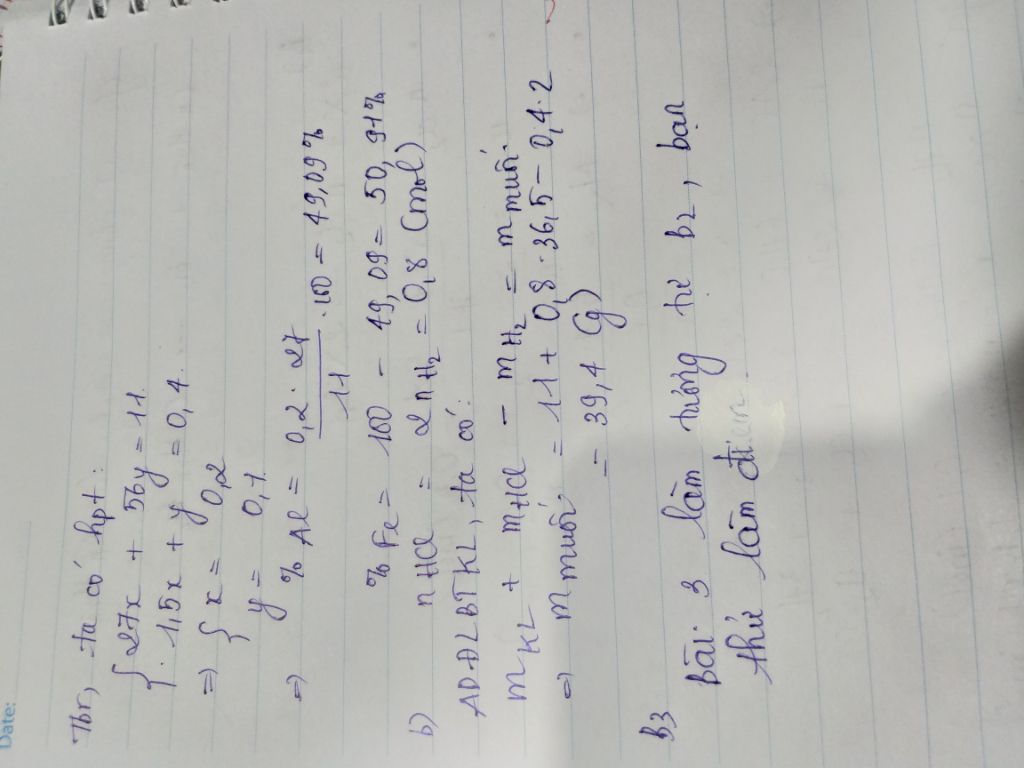 Date:
Tbr, ta có hpt:
{ 27x + 56y = 11
1,5x + y = 0,4
=> { x = 0,2
y = 0,1
=> % Al = 0,2 . 27 / 11 . 100 = 49,09%
% Fe = 100 - 49,09 = 50,91%
b) nHCl = 2nH2 = 0,8 (mol)
AD ĐLBTKL, ta có:
mKL + mHCl - mH2 = m muối
=> m muối = 11 + 0,8 . 36,5 - 0,4 . 2
= 39,4 (g)
B3
Bài 3 làm tương tự b2, bạn
thử làm đi